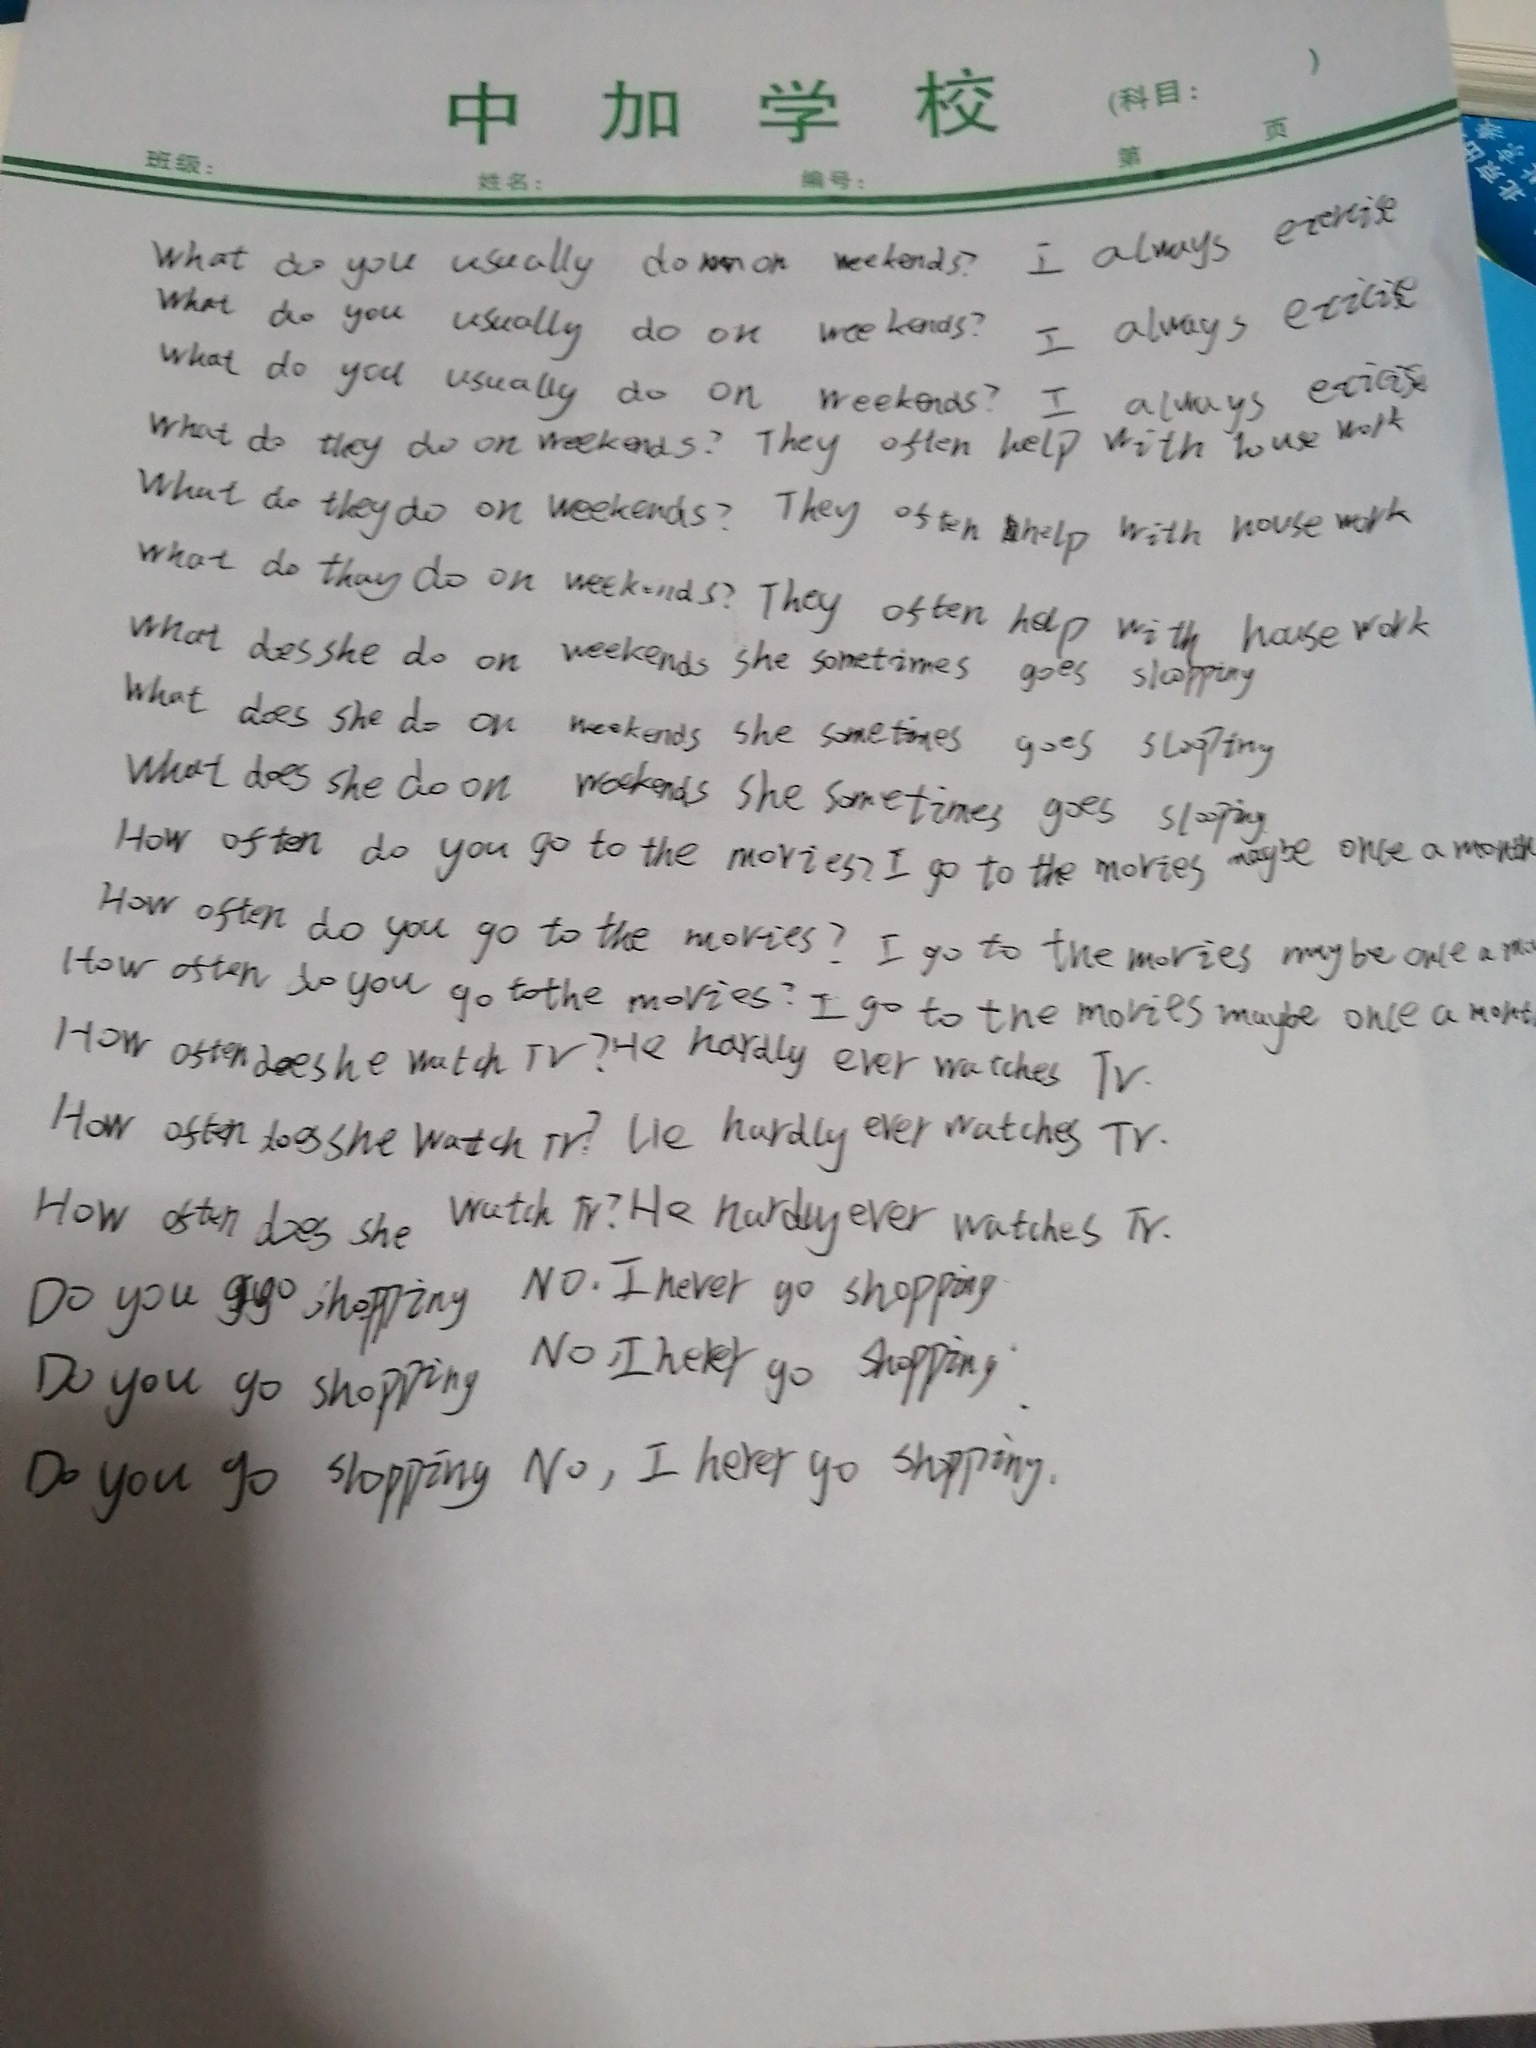 中加学校
(科目: )
班级: 姓名: 编号: 第 页
What do you usually do on weekends? I always exercise
What do you usually do on weekends? I always exicise
What do you usually do on weekends? I always exicise
What do they do on weekends? They often help with house work
What do they do on weekends? They often help with house work
What do thay do on weekends? They often help with house work
What does she do on weekends she sometimes goes slopping
What does she do on weekends she sometimes goes slopping
What does she do on weekends she sometimes goes slooping
How often do you go to the movies? I go to the movies maybe once a month
How often do you go to the movies? I go to the movies maybe once a mo
How often do you go to the movies? I go to the movies maybe once a month
How often does he watch TV? He hardly ever watches TV.
How often does she watch TV? He hardly ever watches TV.
How often does she watch TV? He hardly ever watches TV.
Do you go shopping No. I never go shopping
Do you go shopping No, I never go shopping.
Do you go slopping No, I never go shopping.
北京